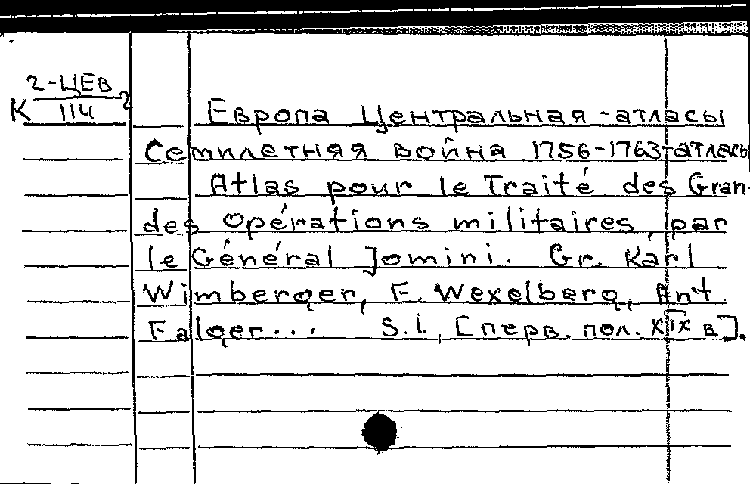 2-ЦЕВ
К 114 2
Европа Центральная-атласы
Семилетняя война 1756-1763-атласы
Atlas pour le Traité des Gran-
des opérations militaires, par
le Général Jomini. Gr. Karl
Wimberger, F. Wexelberg, Ant
Falger... S.l., [перв. пол. XIX в].